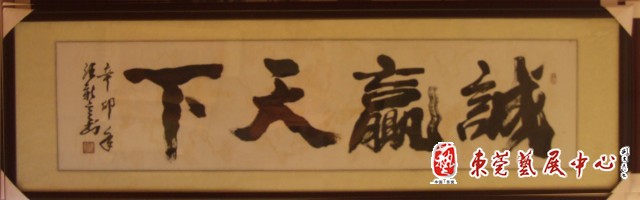 誠贏天下
辛卯年
東莞藝展中心